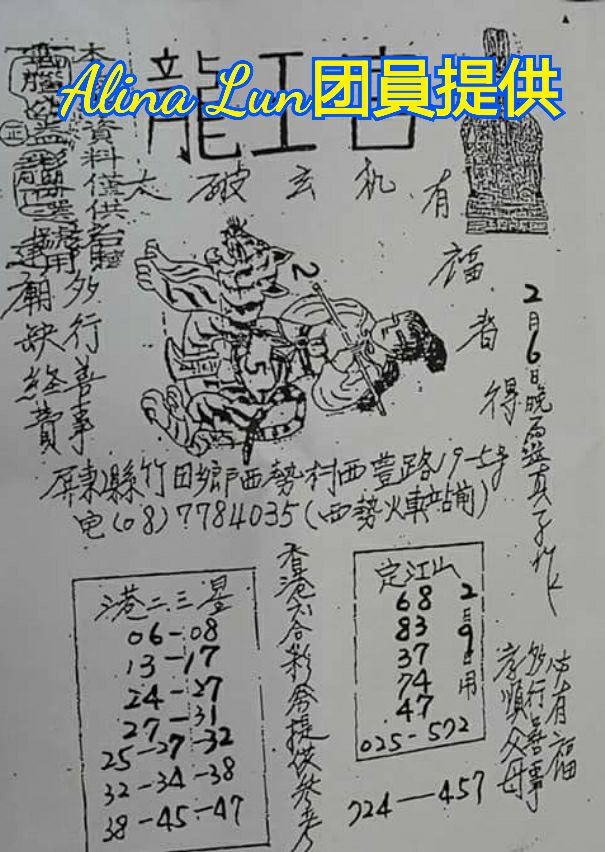 Alina Lun团員提供
龍江宮
大破玄机有福者得
本資料僅供
正
建廟缺經費
多行善事
2
5
2月6日晚
屏東縣竹田鄉西勢村西豐路19-5号
电(08)7784035(西勢火車站前)
港二三星
06-08
13-17
24-27
27-31
25-27-32
32-34-38
38-45-47
香港六合彩
提供參考
定江山
2月9日用
68
83
37
74
47
025-572
724—457
孝順父母
多行善事
必有福